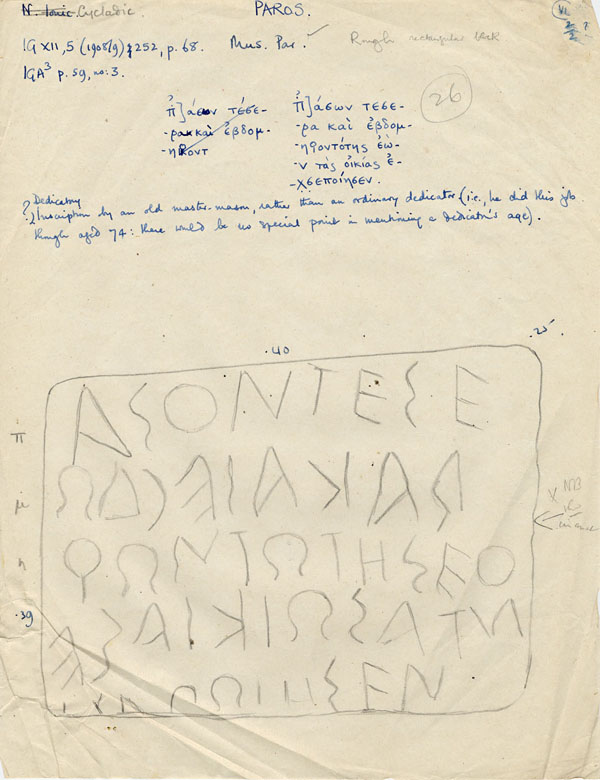 N. Ionic Cycladic
PAROS.
IG XII, 5 (1908/9) 252, p. 68. Mus. Par. Rough rectangular block
IGA³ p. 59, no: 3.
26
τέσε-
-ρα και ἑβδομ-
-ηκοντ
Ἀ̣σων τεσε-
-ρα καὶ ἑβδομ-
-ηϙοντότης ἐὼ-
-ν τὰς οἰκίας ἐ-
-χσεποίησεν.
? Dedicatory
Inscription by an old master-mason, rather than an ordinary dedicator (i.e., he did this job
though aged 74: there would be no special point in mentioning a dedicator's age).
.40
.25
ΑSΟΝΤΕSΕ
ΡΑΚΑΙ
ϘΩΝΤΩΤΗSΕΟ
ΝΤΑSΩΙΚΙΑSΕ
ΩΙΗSΕΝ
π
μ
η
.39
NB